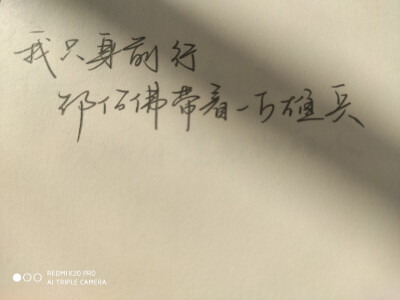 我只身前行
却仿佛带着一万雄兵
REDMI K20 PRO
AI TRIPLE CAMERA